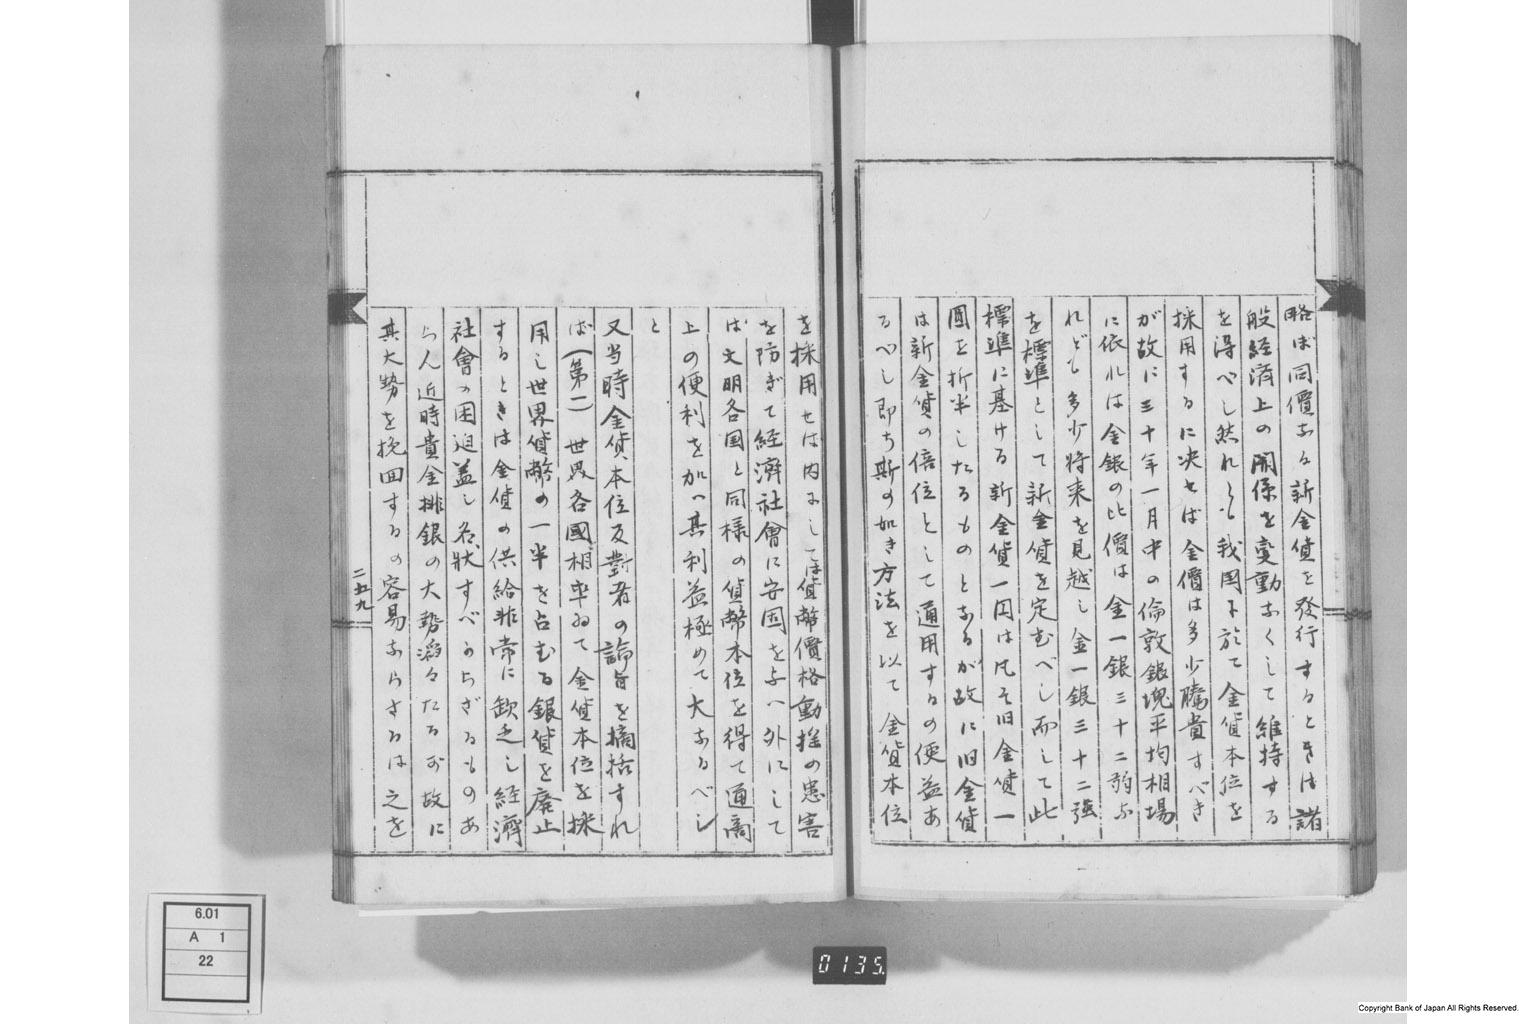 略ぼ同價なる新金貨を發行するときは諸
般経済上の関係を変動なくして維持する
を得べし然れども我国に於て金貨本位を
採用するに决せば金價は多少騰貴すべき
が故に三十年一月中の倫敦銀塊平均相場
に依れは金銀の比價は金一銀三十二弱な
れども多少将来を見越し金一銀三十二強
を標準として新金貨を定むべし而して此
標準に基ける新金貨一円は凡そ旧金貨一
圓を折半したるものとなるが故に旧金貨
は新金貨の倍位として通用するの便益あ
るべし即ち斯の如き方法を以て金貨本位
を採用せは内にしては貨幣價格動揺の患害
を防ぎて経濟社會に安固を与へ外にして
は文明各国と同様の貨幣本位を得て通商
上の便利を加へ其利益極めて大なるべし
と
又当時金貨本位反對者の論旨を摘括すれ
ば(第二 世界各國相率ゐて金貨本位を採
用し世界貨幣の一半を占むる銀貨を廃止
するときは金貨の供給非常に欽乏し経濟
社會の困迫蓋し名状すべからざるものあ
らん近時貴金排銀の大勢滔々たるが故に
其大勢を挽回するの容易ならざるは之を
二五九
6.01
A 1
22
0135.
Copyright Bank of Japan All Rights Reserved.